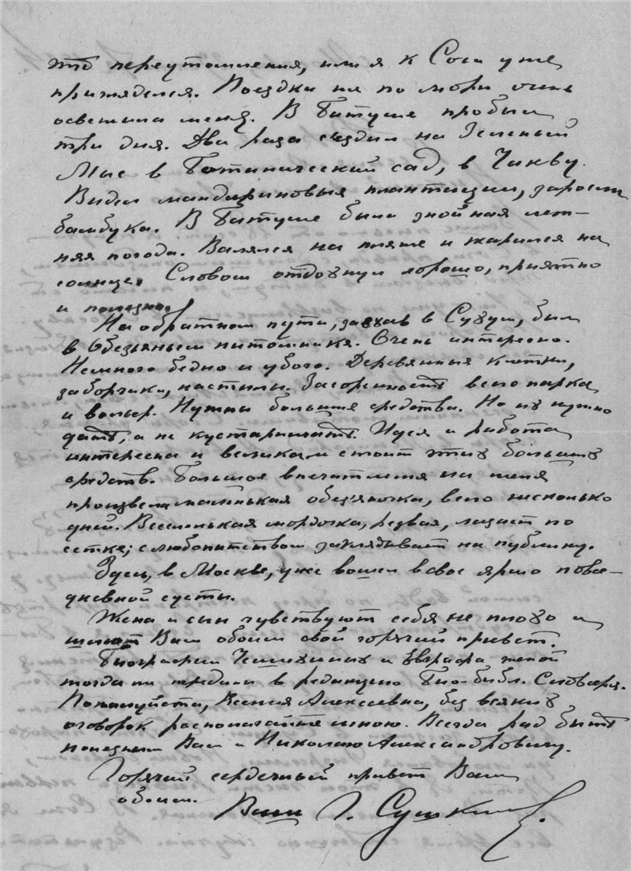 это переутомления, или я к Сочи уже
пригляделся. Поездка же по морю очень
освежила меня. В Батуме пробыли
три дня. Два раза ездили на Зеленый
Мыс в Ботанический сад, в Чакву.
Видел мандариновые плантации, заросли
бамбука. В Батуме была знойная лет-
няя погода. Валялся на пляже и жарился на
солнце. Словом отдохнул хорошо, приятно
и полезно.
На обратном пути, заехав в Сухум, был
в Обезьяньем питомнике. Очень интересно.
Немного бедно и убого. Деревянные клетки,
заборчики, настилы. Засоренность всего парка
и вольер. Нужны большие средства. Но их нужно
дать, а не кустарничать. Идея и работа
интересна и велика и стоит этих больших
средств. Большое впечатление на меня
произвела маленькая обезьяночка, всего несколько
дней. Веселенькая мордочка, резвая, лазает по
сетке; с любопытством заглядывает на публику.
Здесь, в Москве, уже вошел в свое ярмо повсе-
дневной суеты.
Жена и сын чувствуют себя не плохо и
шлют Вам обоим свой горячий привет.
Биографии Чемезиных и женой
тогда же передал в редакцию Био-библ. Словаря.
Пожалуйста, Ксения Алексеевна, без всяких
оговорок располагайте мною. Всегда рад быть
полезным Вам и Николаю Александровичу.
Горячий сердечный привет Вам
обоим.
Ваш Г. Сушкин.